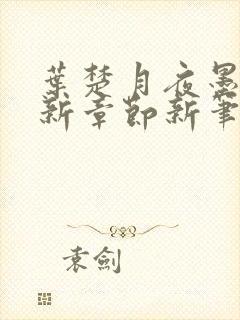 葉楚月夜墨
新章節新筆
袁劍